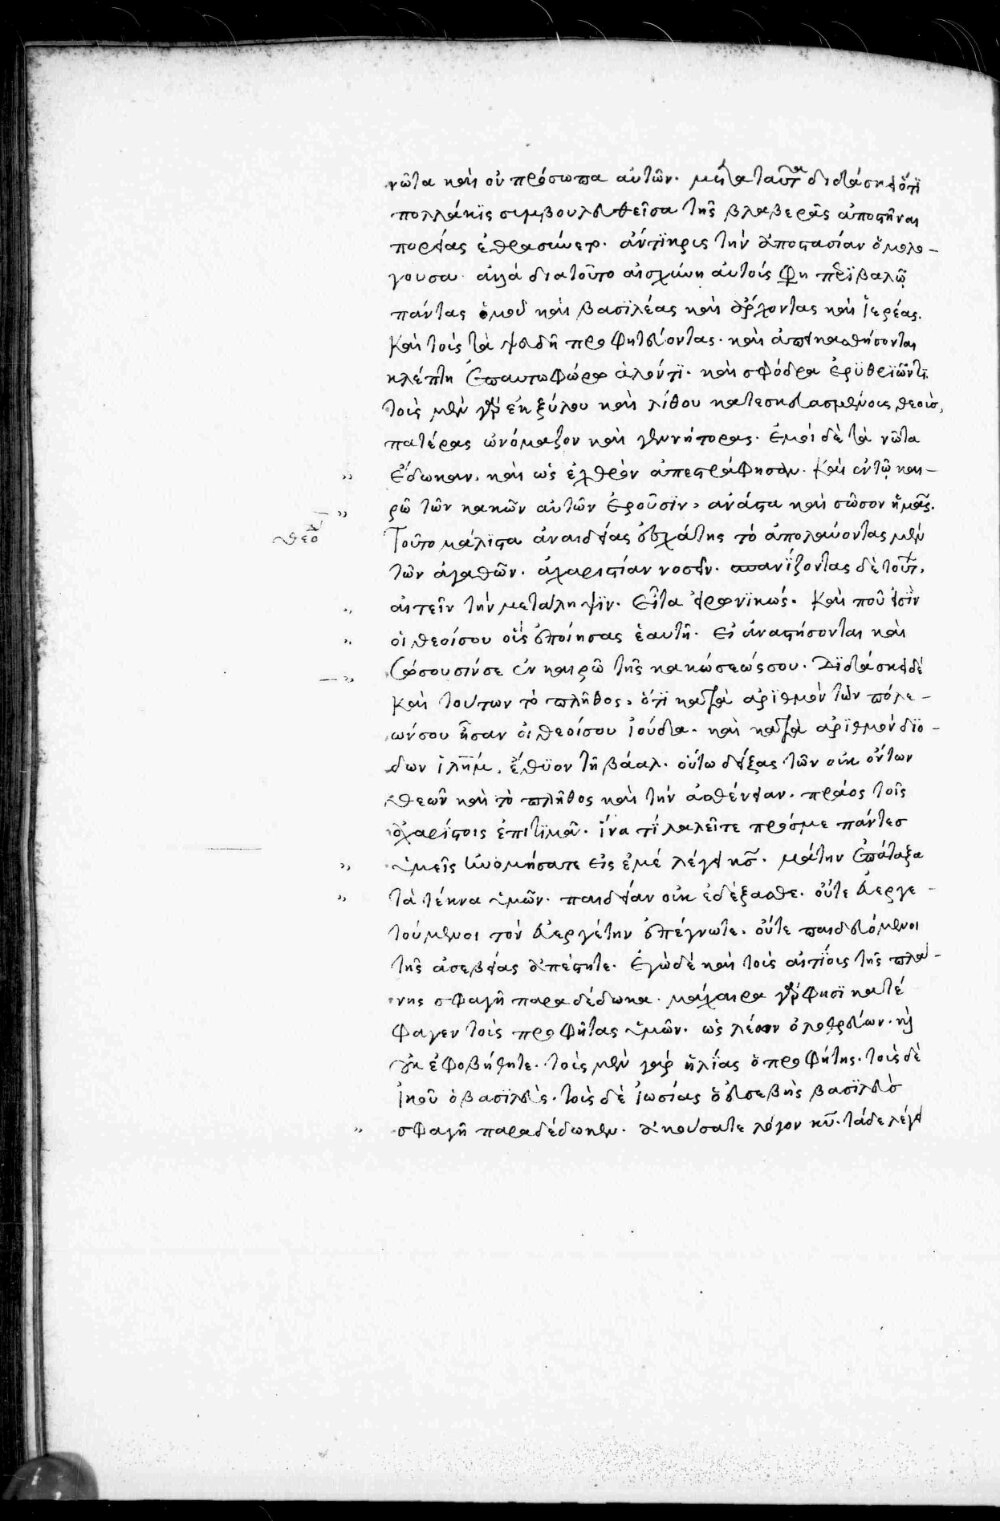 νῶτα καὶ οὐ πρόσωπα αὐτῶν. μετὰ ταῦτα διδάσκει ὅτι
πολλάκις συμβουλευθεῖσα τῆς βλαβερᾶς ἀποστῆναι
πορείας ἐθρασύνετο. ἀντικρὺς τὴν ἀποστασίαν ὁμολο-
γοῦσα. ἀλλὰ διατοῦτο αἰσχύνη αὐτοὺς φη περιβαλῶ
πάντας ὁμοῦ καὶ βασιλέας καὶ ἄρχοντας καὶ ἱερέας.
καὶ τοὺς τὰ ψευδῆ προφητεύοντας. καὶ ἀπεικασθήσονται
κλέπτη ἐπαυτοφώρω ἁλόντι. καὶ σφόδρα ἐρυθριῶντι.
τοὺς μὲν γὰρ ἐκ ξύλου καὶ λίθου κατεσκευασμένους θεοὺς,
πατέρας ὠνόμαζον καὶ γεννήτορας. ἐμοὶ δὲ τὰ νῶτα
ἔδωκαν. καὶ ὡς ἐχθρὸν ἀπεστράφησαν. καὶ ἐν τῷ και-
ρῶ τῶν κακῶν αὐτῶν ἐροῦσιν, ἀνάστα καὶ σῶσον ἡμᾶς.
Τοῦτο μάλιστα ἀναιδείας ἐσχάτης τὸ ἀπολαύοντας μὲν
τῶν ἀγαθῶν. ἀχαριστίαν νοσεῖν. σπανίζοντας δὲ τούτων,
αἰτεῖν τὴν μετάληψιν. εἶτα εἰρωνικῶς. καὶ ποῦ εἰσὶν
οἱ θεοί σου οὓς ἐποίησας ἑαυτῆ. εἰ ἀναστήσονται καὶ
σώσουσίν σε ἐν καιρῶ τῆς κακώσεώς σου. Διδάσκει δὲ
καὶ τούτων τὸ πλῆθος, ὅτι κατὰ ἀριθμὸν τῶν πόλε-
ών σου ἦσαν οἱ θεοί σου ἰούδα. καὶ κατὰ ἀριθμὸν διό-
δων ἱλημ, ἔθυον τῆ βάαλ. οὕτω δείξας τῶν οὐκ ὄντων
θεῶν καὶ τὸ πλῆθος καὶ τὴν ἀσθένειαν. πράως τοῖς
ἀχαρίστοις ἐπιτιμᾶ. ἵνα τί λαλεῖτε πρός με πάντες
ὑμεῖς ἠνομήσατε εἰς ἐμέ λέγει κς. μάτην ἐπάταξα
τὰ τέκνα ὑμῶν. παιδείαν οὐκ ἐδέξασθε. οὔτε εὐεργε-
τούμενοι τὸν εὐεργέτην ἐπέγνωτε. οὔτε παιδευόμενοι
τῆς ἀσεβείας ἀπέστητε. ἐγὼ δὲ καὶ τοὺς αἰτίους τῆς πλά-
νης σφαγῆ παραδέδωκα. μάχαιρα γὰρ φησὶ κατέ
φαγεν τοὺς προφήτας ὑμῶν. ὡς λέων ὀλοθρεύων. καὶ
οὐκ ἐφοβήθητε. τοὺς μὲν γὰρ ἡλίας ὁ προφήτης. τοὺς δὲ
ἰηοῦ ὁ βασιλεὺς. τοὺς δὲ ἰωσίας ὁ εὐσεβὴς βασιλεὺς
σφαγῆ παραδέδωκεν. ἀκούσατε λόγον κυ. τάδε λέγει